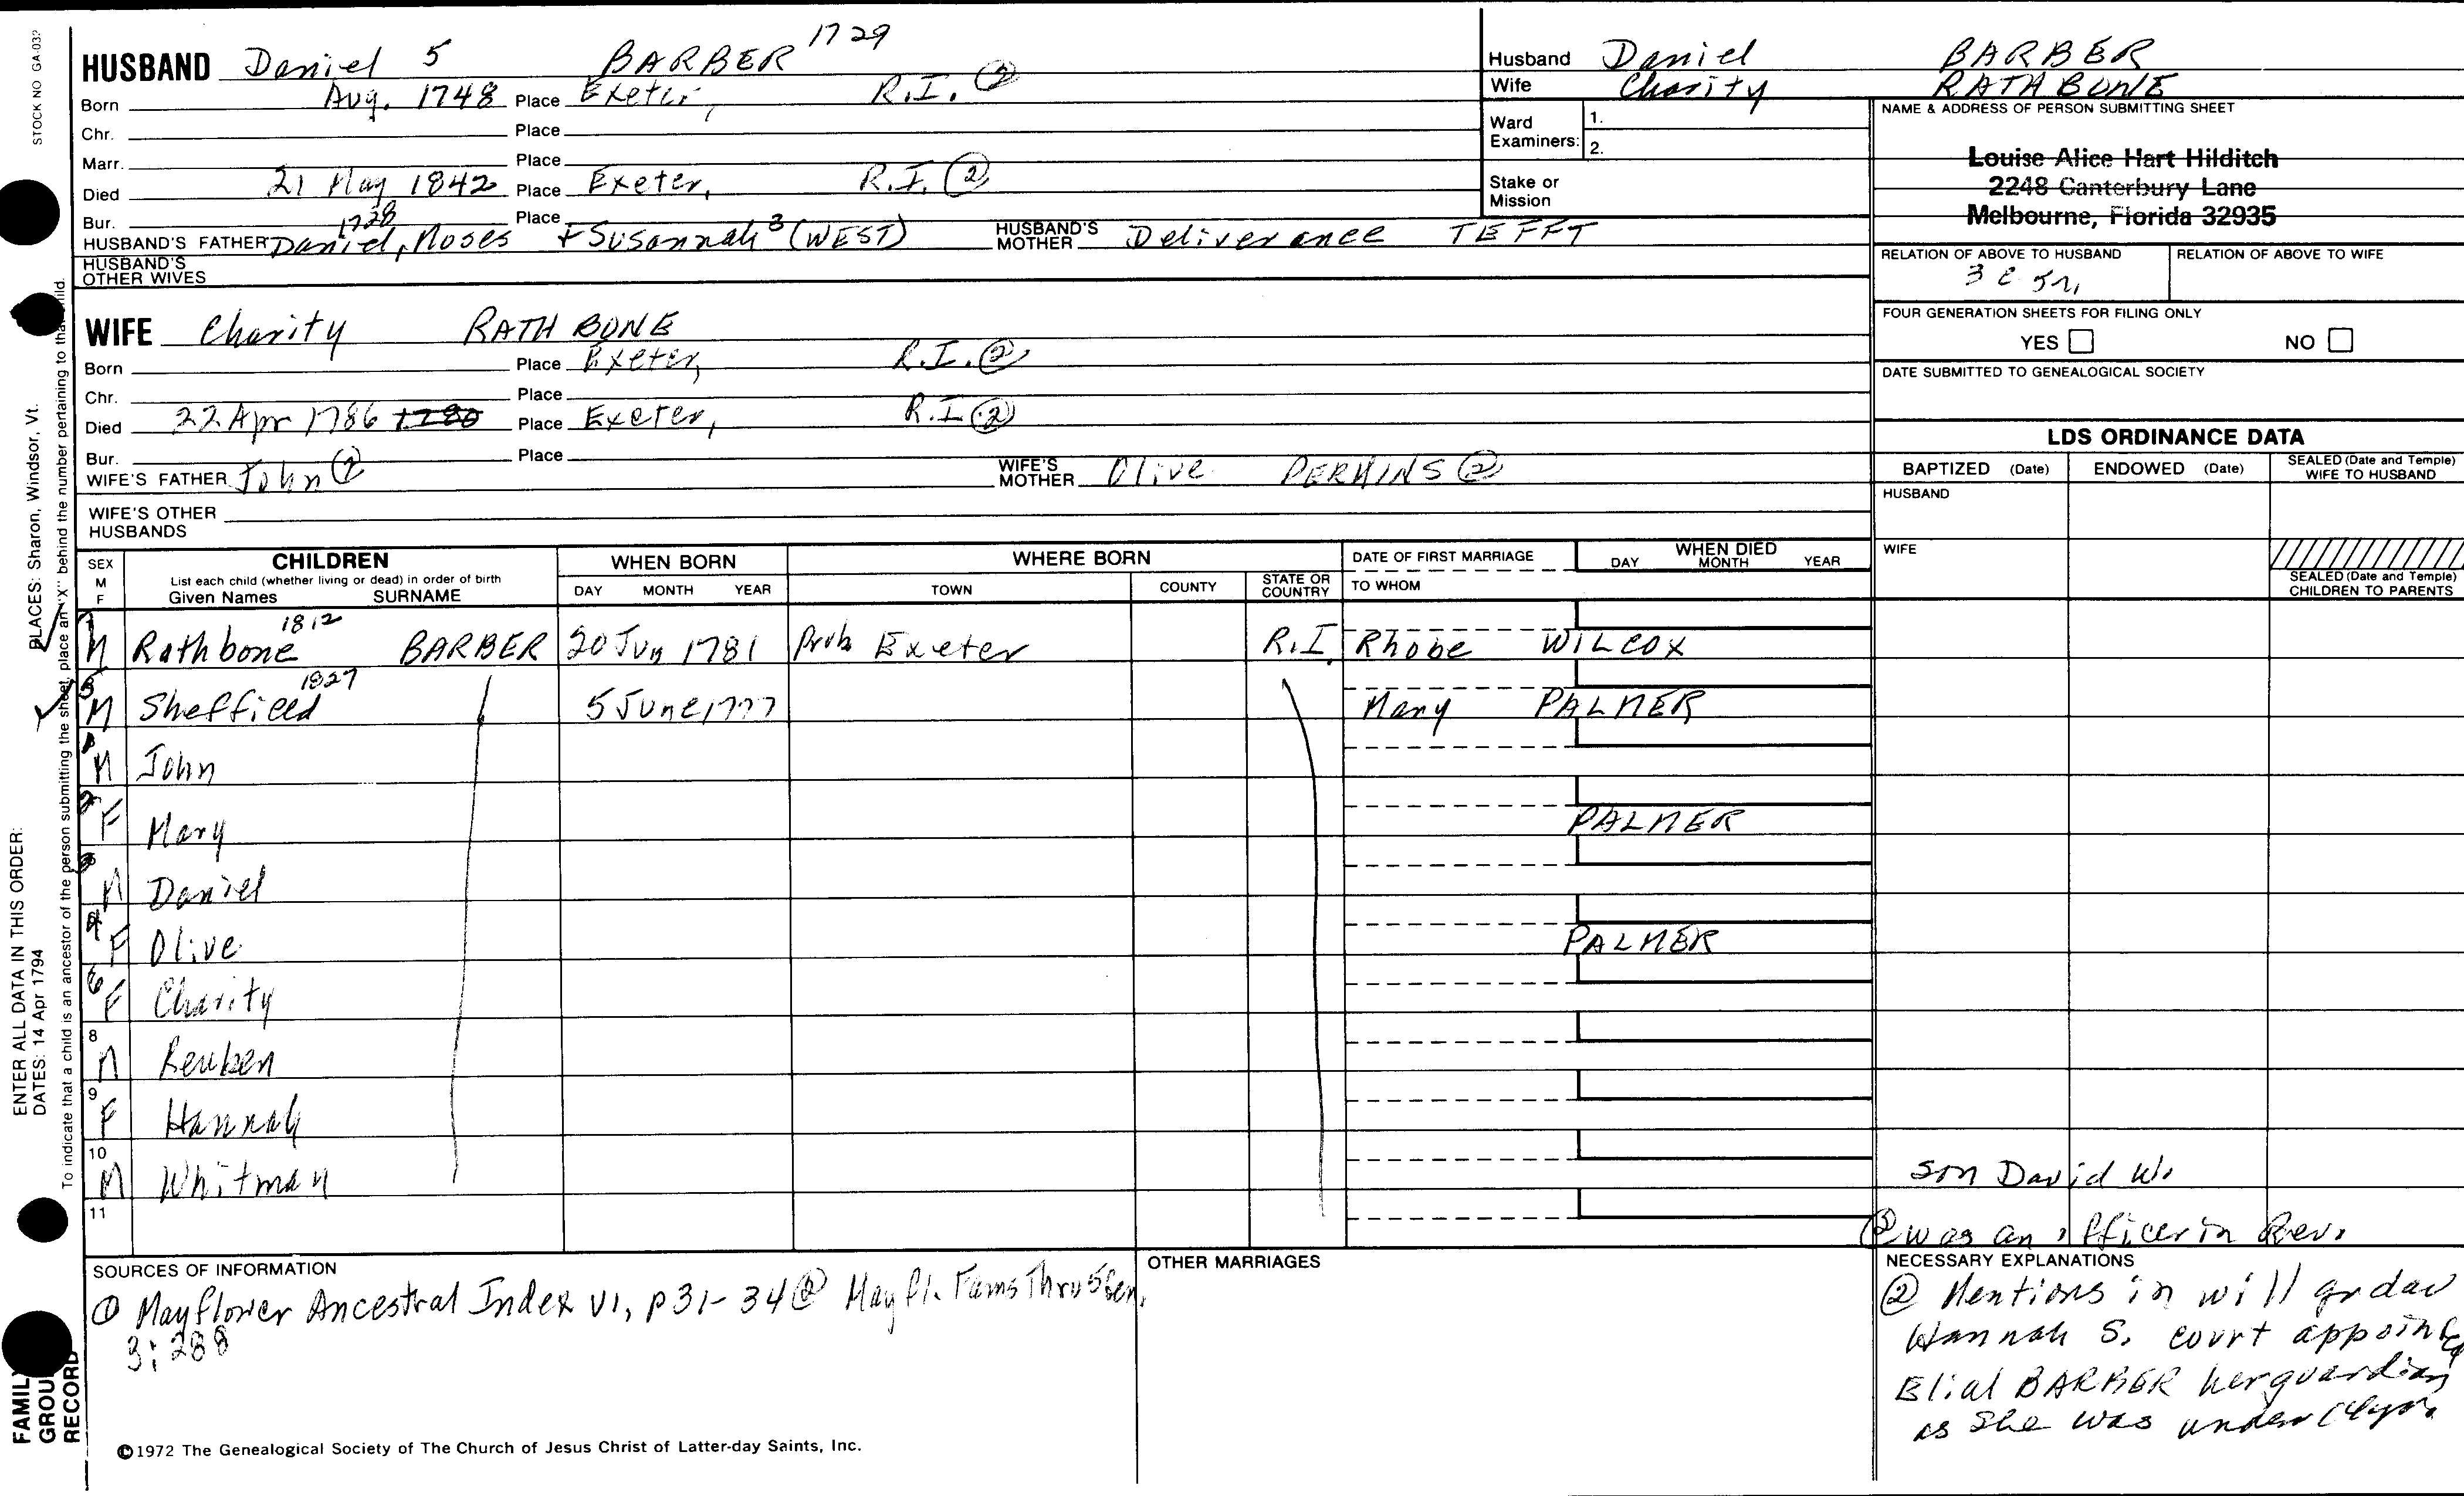 STOCK NO GA-032
HUSBAND Daniel 5 BARBER 1729
Born Aug. 1748 Place Exeter, R.I. ②
Chr. Place
Marr. Place
Died 21 May 1842 Place Exeter, R.I. ②
Bur. Place
HUSBAND'S FATHER Daniel, 1728 Moses + Susannah 3 (WEST) HUSBAND'S MOTHER Deliverance TEFFT
HUSBAND'S OTHER WIVES
WIFE Charity RATHBONE
Born Place Exeter, R.I. ②
Chr. Place
Died 22 Apr 1786 1780 Place Exeter, R.I ②
Bur. Place
WIFE'S FATHER John ② WIFE'S MOTHER Olive PERKINS ②
WIFE'S OTHER HUSBANDS
Husband Daniel BARBER
Wife Charity RATHBONE
Ward Examiners: 1. 2.
Stake or Mission
NAME & ADDRESS OF PERSON SUBMITTING SHEET
Louise Alice Hart Hilditch
2248 Canterbury Lane
Melbourne, Florida 32935
RELATION OF ABOVE TO HUSBAND RELATION OF ABOVE TO WIFE
FOUR GENERATION SHEETS FOR FILING ONLY
YES NO
DATE SUBMITTED TO GENEALOGICAL SOCIETY
LDS ORDINANCE DATA
BAPTIZED (Date) ENDOWED (Date) SEALED (Date and Temple) WIFE TO HUSBAND
HUSBAND
WIFE
SEALED (Date and Temple) CHILDREN TO PARENTS
SEX M F CHILDREN WHEN BORN WHERE BORN DATE OF FIRST MARRIAGE WHEN DIED
List each child (whether living or dead) in order of birth
Given Names SURNAME DAY MONTH YEAR TOWN COUNTY STATE OR COUNTRY TO WHOM DAY MONTH YEAR
7 M Rathbone 1812 BARBER 20 Jun 1781 Prob Exeter R.I. Rhobe WILCOX
5 M Sheffield 1827 5 June 1777 Mary PALMER
1 M John
2 F Mary PALMER
3 M Daniel
4 F Olive PALMER
6 F Charity
8 M Reuben
9 F Hannah
10 M Whitman son David W.
11
was an officer in Rev.
SOURCES OF INFORMATION
① Mayflower Ancestral Index V1, p31-34 ② Mayfl. Fams Thru 5 Gen.
3:288
OTHER MARRIAGES
NECESSARY EXPLANATIONS
② Mentions in will gr dau
Hannah S. court
Elial BARBER her guardian
as she was under
©1972 The Genealogical Society of The Church of Jesus Christ of Latter-day Saints, Inc.
ENTER ALL DATA IN THIS ORDER:
DATES: 14 Apr 1794 PLACES: Sharon, Windsor, Vt.
To indicate that a child is an ancestor of the person submitting the sheet, place an "X" behind the number pertaining to that child.
FAMILY
GROUP
RECORD